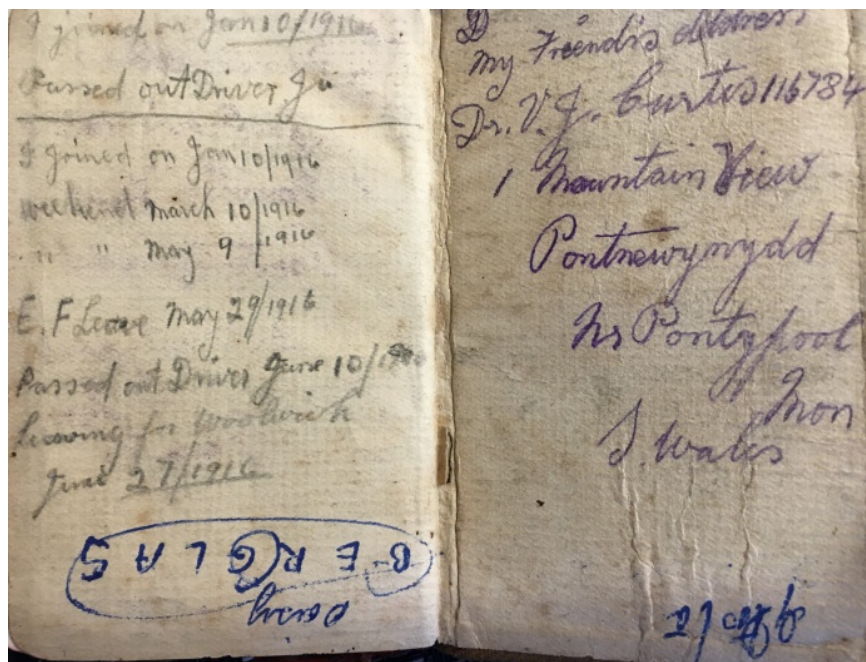 I joined on Jan 10/1916
Passed out Driver Ju
I joined on Jan 10/1916
weekend March 10/1916
" " May 9/1916
E. F Leave May 29/1916
Passed out Driver June 10/
leaving for Woolwich
June 27/1916
BERGLAS
D
My Friend's address
Dr. V. J. Curtis 116784
1 Mountain View
Pontnewynydd
Nr Pontypool
Mon
S. Wales